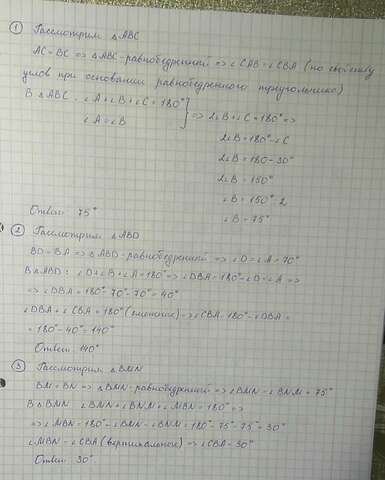 ① Рассмотрим △ABC
AC = BC => △ABC - равнобедренный => ∠CAB = ∠CBA (по свойству
углов при основании равнобедренного треугольника)
В △ABC: ∠A + ∠B + ∠C = 180°
∠A = ∠B
=> 2∠B + ∠C = 180° =>
2∠B = 180° - ∠C
2∠B = 180 - 30°
2∠B = 150°
∠B = 150° : 2
∠B = 75°
Ответ: 75°
② Рассмотрим △ABD
BD = BA => △ABD - равнобедренный => ∠D = ∠A = 70°
В △ABD: ∠D + ∠B + ∠A = 180° => ∠DBA = 180° - ∠D - ∠A =>
=> ∠DBA = 180° - 70° - 70° = 40°
∠DBA + ∠CBA = 180° (смежные) => ∠CBA = 180° - ∠DBA =
= 180° - 40° = 140°
Ответ: 140°
③ Рассмотрим △BMN
BM = BN => △BMN - равнобедренный => ∠BMN = ∠BNM = 75°
В △BMN ∠BMN + ∠BNM + ∠MBN = 180° =>
=> ∠MBN = 180° - ∠BMN - ∠BNM = 180° - 75° - 75° = 30°
∠MBN = ∠CBA (вертикальные) => ∠CBA = 30°
Ответ: 30°